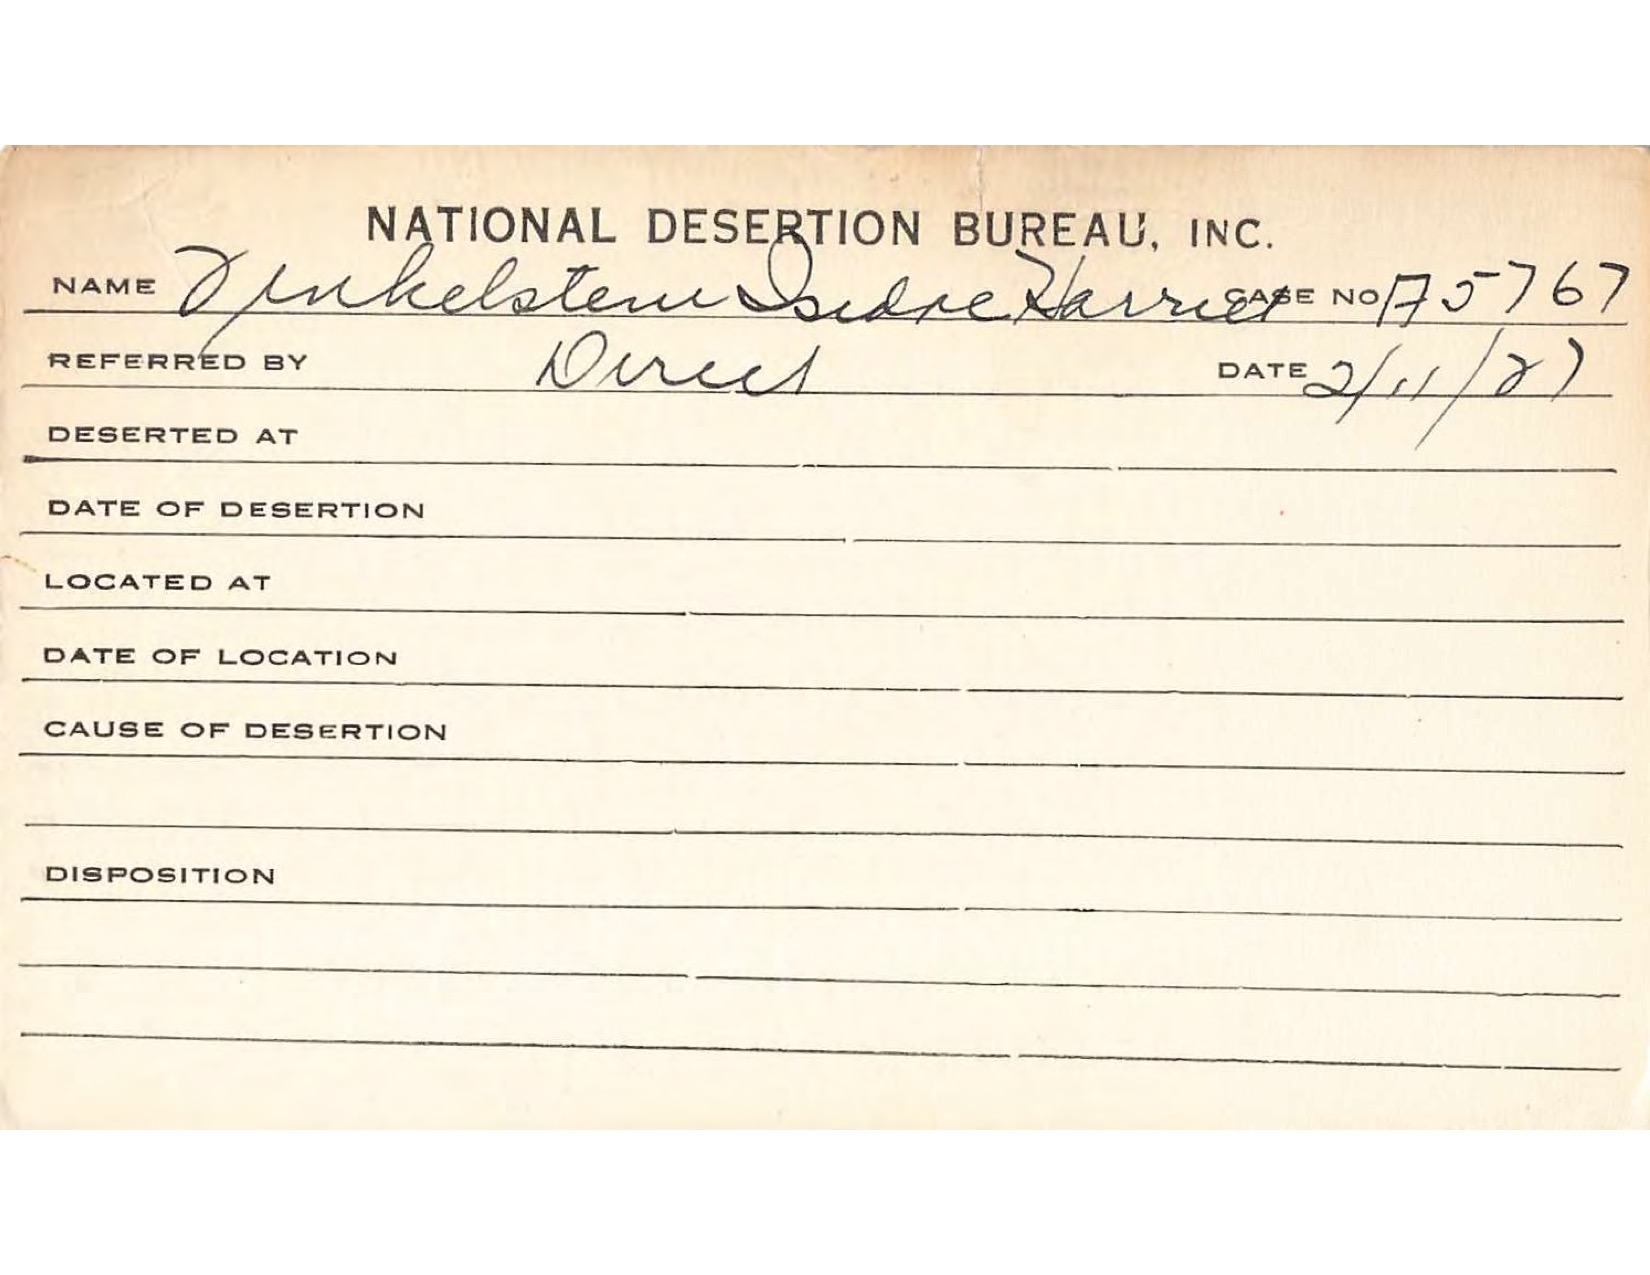 NATIONAL DESERTION BUREAU, INC.
NAME Finkelstein Isidore Harriet CASE NO A5767
REFERRED BY Direct DATE 2/11/27
DESERTED AT
DATE OF DESERTION
LOCATED AT
DATE OF LOCATION
CAUSE OF DESERTION
DISPOSITION